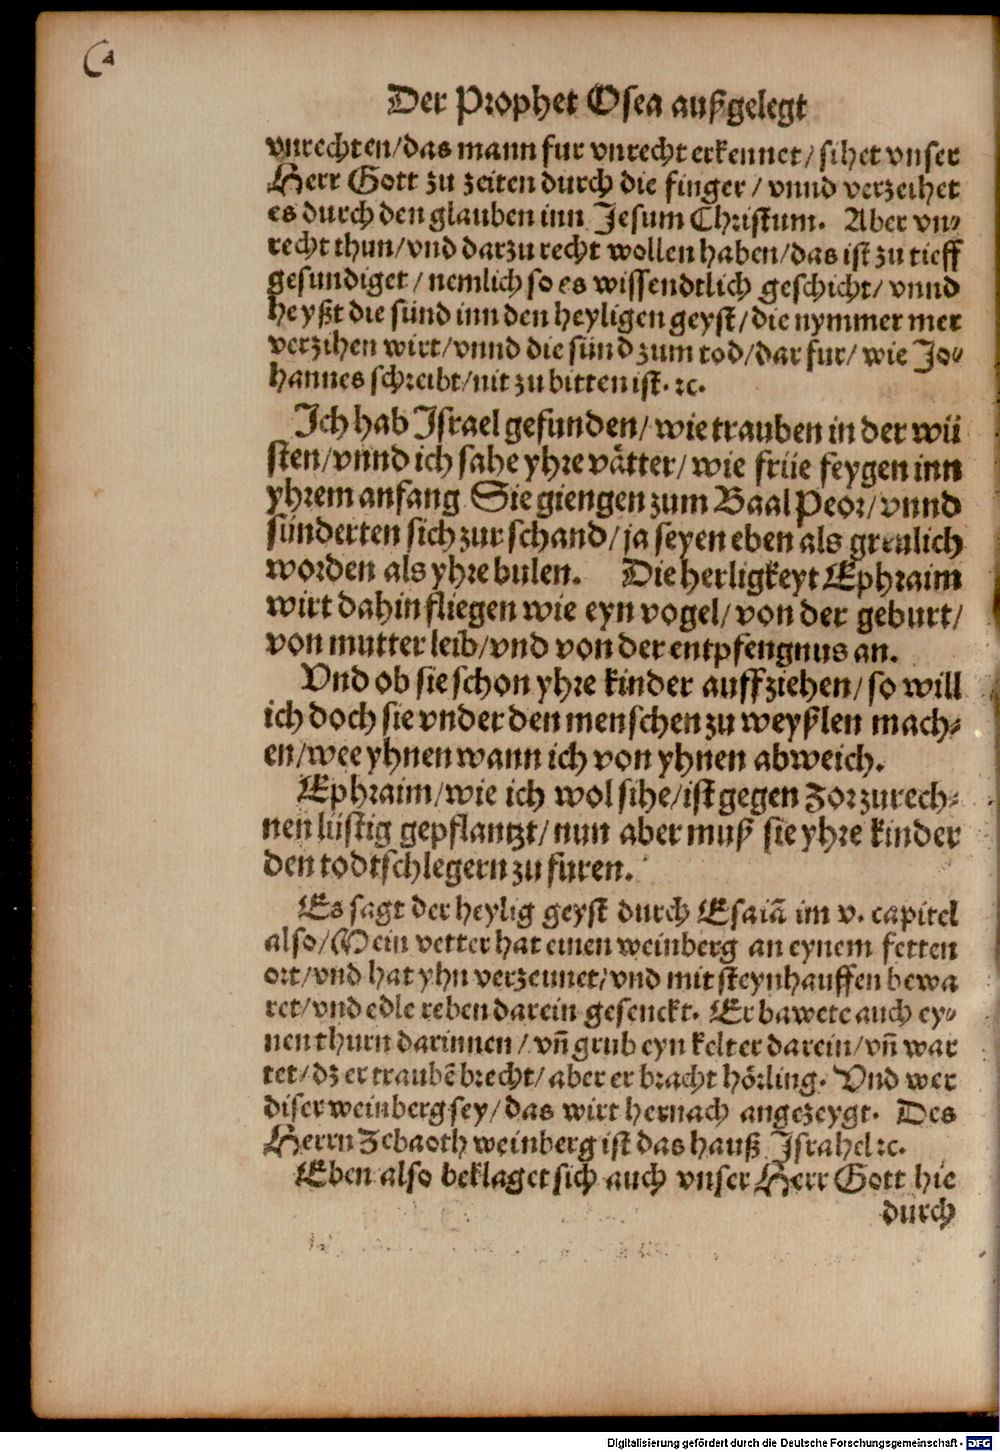 Der Prophet Osea außgelegt
vnrechten/das mann fur vnrecht erkennet/ sihet vnser
Herr Gott zu zeiten durch die finger / vnnd verzeihet
es durch den glauben inn Jesum Christum. Aber vn⸗
recht thun/vnd darzu recht wollen haben/das ist zu tieff
gesundiget / nemlich so es wissendtlich geschicht/ vnnd
heyßt die sünd inn den heyligen geyst/die nymmer mer
verzihen wirt/vnnd die sünd zum tod/dar fur/ wie Jo⸗
hannes schreibt/nit zu bitten ist. ꝛc.
Ich hab Israel gefunden/ wie trauben in der wü
sten/vnnd ich sahe yhre vätter/ wie früe feygen inn
yhrem anfang Sie giengen zum Baal Peor/ vnnd
sünderten sich zur schand/ja seyen eben als greulich
worden als yhre bulen. Die herligkeyt Ephraim
wirt dahin fliegen wie eyn vogel/ von der geburt/
von mutter leib/vnd von der entpfengnus an.
Vnd ob sie schon yhre kinder auffziehen/ so will
ich doch sie vnder den menschen zu weyßlen mach⸗
en/wee yhnen wann ich von yhnen abweich.
Ephraim/wie ich wol sihe/ist gegen Zor zurech⸗
nen lüstig gepflantzt/ nun aber muß sie yhre kinder
den todtschlegern zu furen.
Es sagt der heylig geyst durch Esaiā im v. capitel
also/Mein vetter hat einen weinberg an eynem fetten
ort/vnd hat yhn verzeunet/vnd mit steynhauffen bewa
ret/vnd edle reben darein gesenckt. Er bawete auch ey⸗
nen thurn darinnen / vñ grub eyn kelter darein/vñ war
tet/dz er traubē brecht/ aber er bracht hörling. Vnd wer
diser weinberg sey/ das wirt hernach angezeygt. Des
Herrn Zebaoth weinberg ist das hauß Israhel ꝛc.
Eben also beklaget sich auch vnser Herr Gott hie
durch
Digitalisierung gefördert durch die Deutsche Forschungsgemeinschaft - DFG